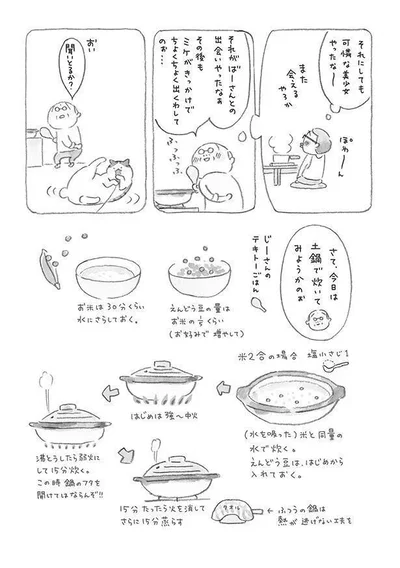 それにしても
可憐な美少女
やったな〜
また
会える
やろか
ぽわーん
それがばーさんとの
出会いやったなぁ
その後も
ミケがきっかけで
ちょくちょく出くわして
のぉ…
ふ、
ふ、
ふ、
おい
聞いとるか?
さて、今日は
土鍋で炊いて
みようかのお
じーさんの
テキトーごはん
えんどう豆の量は
お米の
くらい
(お好みで増やして)
お米は30分くらい
水にさらしておく。
米2合の場合 塩小さじ1
(水を吸った)米と同量の
水で炊く。
えんどう豆は、はじめから
入れておく。
はじめは強〜中火
沸とうしたら弱火に
して15分炊く。
この時鍋のフタを
開けてはならんぞ!!
15分たったら火を消して
さらに15分蒸らす
タオル
ふつうの鍋は
熱が逃げない工夫を